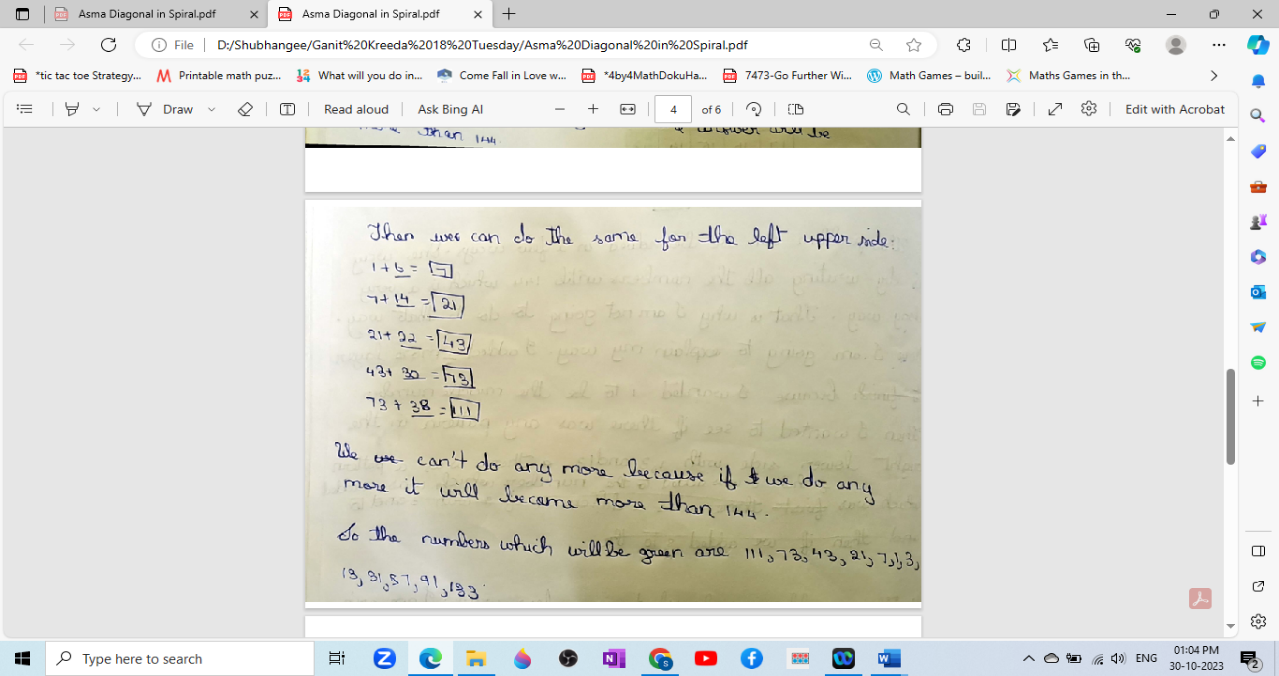 Asma Diagonal in Spiral.pdf
Asma Diagonal in Spiral.pdf
File D:/Shubhangee/Ganit%20Kreeda%2018%20Tuesday/Asma%20Diagonal%20in%20Spiral.pdf
*tic tac toe Strategy... Printable math puz... What will you do in... Come Fall in Love w... *4by4MathDokuHa... 7473-Go Further Wi... Math Games – buil... Maths Games in th...
Draw Read aloud Ask Bing AI 4 of 6 Edit with Acrobat
than 144. answer will be
Then we can do the same for the left upper side:
1+6=7
7+14=21
21+22=43
43+30=73
73+38=111
We can't do any more because if we do any
more it will become more than 144.
So the numbers which will be green are 111, 73, 43, 21, 7, 1, 3,
13, 31, 57, 91, 133.
Type here to search
ENG
01:04 PM
30-10-2023
2